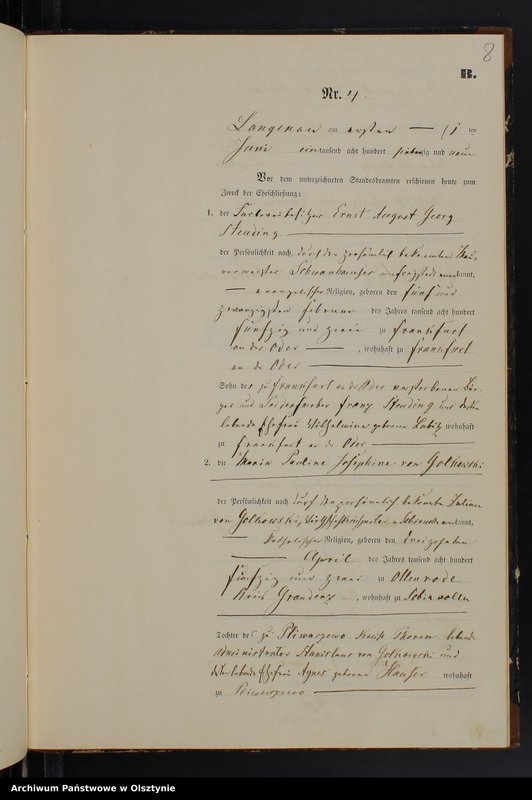 8
B.
Nr. 4.
Langenau am ersten — (1 ten
Juni eintausend acht hundert siebenzig und neun
Vor dem unterzeichneten Standesbeamten erschienen heute zum
Zweck der Eheschließung:
1. der Färbereibesitzer Ernst August Georg
Steuding
der Persönlichkeit nach durch den persönlich bekannten
Schwanhauser kannt,
— evangelischer Religion, geboren den fünf und
zwanzigsten Februar des Jahres tausend acht hundert
fünfzig und zwei zu Frankfurt
an der Oder — , wohnhaft zu Frankfurt
an der Oder
Sohn des zu Frankfurt an der Oder verstorbenen Bür-
ger und Seidenfärber Franz Steuding und dessen
lebende Ehefrau Wilhelmine geborene wohnhaft
zu Frankfurt an der Oder
2. die Maria Pauline Josephine von Golkowski
der Persönlichkeit nach durch den persönlich bekannten Julian
von Golkowski, kannt,
— katholischer Religion, geboren den
— April des Jahres tausend acht hundert
fünfzig und zwei zu Ollenrode
Kreis Graudenz — , wohnhaft zu
Tochter des zu Pliwaczewo Kreis Thorn lebenden
Administrator Stanislaus von Golkowski und
dessen lebende Ehefrau Agnes geborene Hauser wohnhaft
zu Pliwaczewo
Archiwum Państwowe w Olsztynie